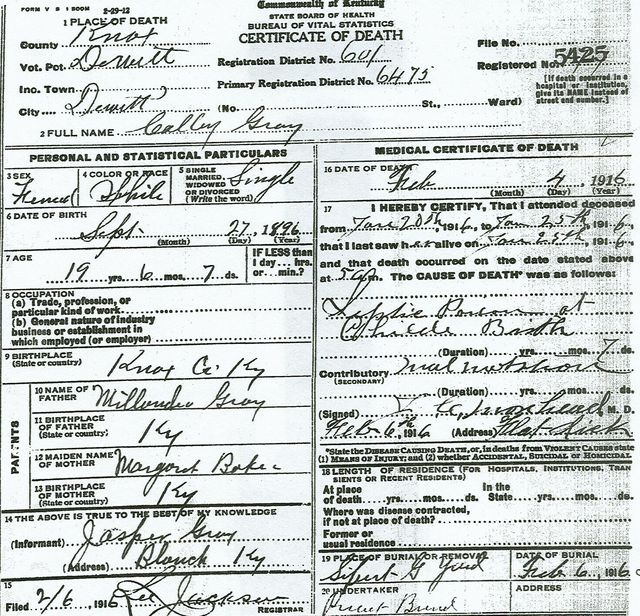 FORM V S 1 500M 2-29-12
Commonwealth of Kentucky
STATE BOARD OF HEALTH
BUREAU OF VITAL STATISTICS
CERTIFICATE OF DEATH
1 PLACE OF DEATH
County Knox
Vot. Pct. Dewitt
Inc. Town
City Dewitt
Registration District No. 601
Primary Registration District No. 6475
(No. St., Ward)
File No.
Registered No. 5425
[If death occurred in a
hospital or institution,
give its NAME instead of
street and number.]
2 FULL NAME Calley Gray
PERSONAL AND STATISTICAL PARTICULARS
3 SEX
4 COLOR OR RACE White
5 SINGLE
MARRIED,
WIDOWED
OR DIVORCED
(Write the word) Single
6 DATE OF BIRTH
Sept 27, 1896
(Month) (Day) (Year)
7 AGE
19 yrs. 6 mos. 7 ds.
IF LESS than
1 day... hrs.
or... min.?
8 OCCUPATION
(a) Trade, profession, or
particular kind of work
(b) General nature of industry
business or establishment in
which employed (or employer)
9 BIRTHPLACE
(State or country) Knox Co Ky
PARENTS
10 NAME OF
FATHER Gray
11 BIRTHPLACE
OF FATHER
(State or country) Ky
12 MAIDEN NAME
OF MOTHER Margaret Baker
13 BIRTHPLACE
OF MOTHER
(State or country) Ky
14 THE ABOVE IS TRUE TO THE BEST OF MY KNOWLEDGE
(Informant) Jasper Gray
(Address) Ky
15
Filed 2/6, 1916 Jackson
REGISTRAR
MEDICAL CERTIFICATE OF DEATH
16 DATE OF DEATH
Feb 4, 1916
(Month) (Day) (Year)
17 I HEREBY CERTIFY, That I attended deceased
from Jan 20th, 1916, to Jan 25th, 1916,
that I last saw h er alive on Jan 25th, 1916,
and that death occurred on the date stated above
at m. The CAUSE OF DEATH* was as follows:
at
Birth
(Duration) yrs. mos. 7 ds.
Contributory
(SECONDARY)
(Duration) yrs. mos. ds.
(Signed) M. D.
Feb 6th, 1916 (Address) Flat Lick
*State the DISEASE CAUSING DEATH, or, in deaths from VIOLENT CAUSES state
(1) MEANS OF INJURY; and (2) whether ACCIDENTAL, SUICIDAL or HOMICIDAL
18 LENGTH OF RESIDENCE (FOR HOSPITALS, INSTITUTIONS, TRAN
SIENTS OR RECENT RESIDENTS)
At place In the
of death yrs. mos. ds. State yrs. mos. ds.
Where was disease contracted,
if not at place of death?
Former or
usual residence
19 PLACE OF BURIAL OR REMOVAL
G Yard
DATE OF BURIAL
Feb 6, 1916
20 UNDERTAKER
ADDRESS